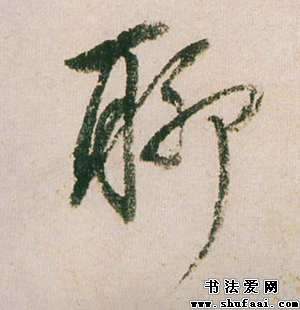 聊
书法爱网
www.shufaai.com